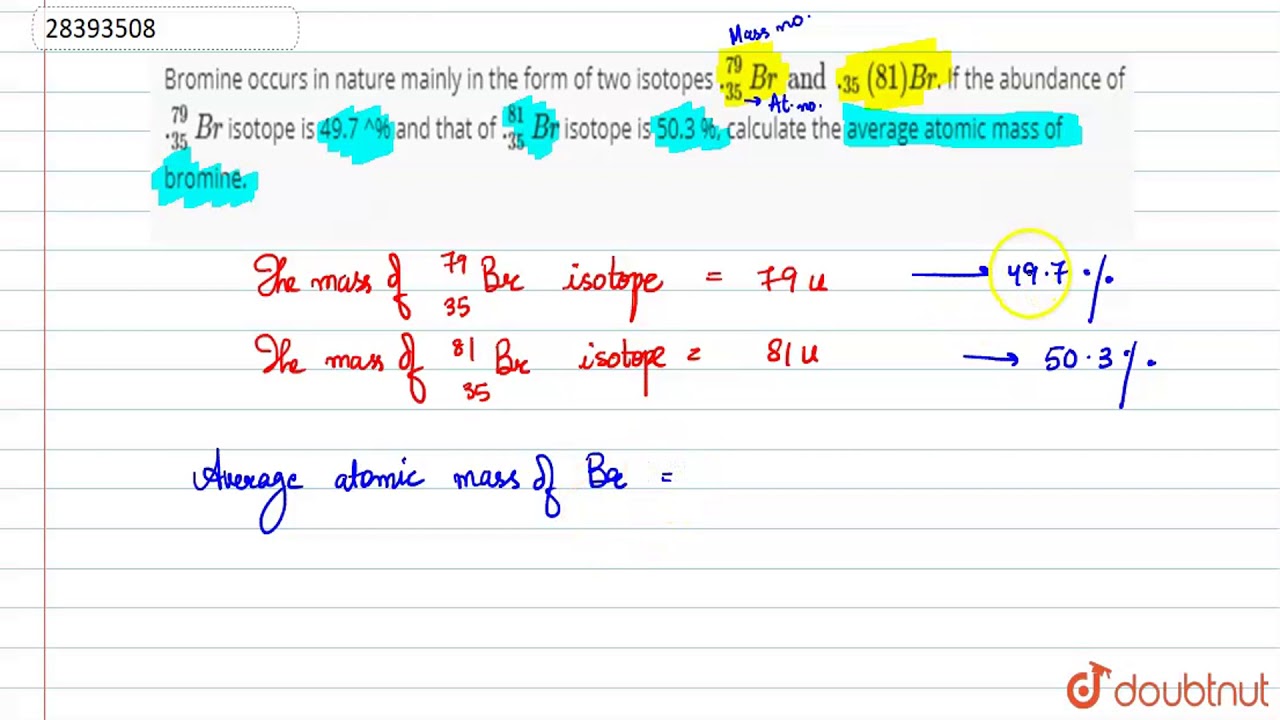 28393508
Mass no.
Bromine occurs in nature mainly in the form of two isotopes .⁷⁹₃₅Br and .₃₅(81)Br. If the abundance of
→ At. no.
.⁷⁹₃₅Br isotope is 49.7 ^% and that of .⁸¹₃₅Br isotope is 50.3 %, calculate the average atomic mass of
bromine.
The mass of ⁷⁹₃₅Br isotope = 79 u → 49.7 %
The mass of ⁸¹₃₅Br isotope = 81 u → 50.3 %
Average atomic mass of Br =
doubtnut